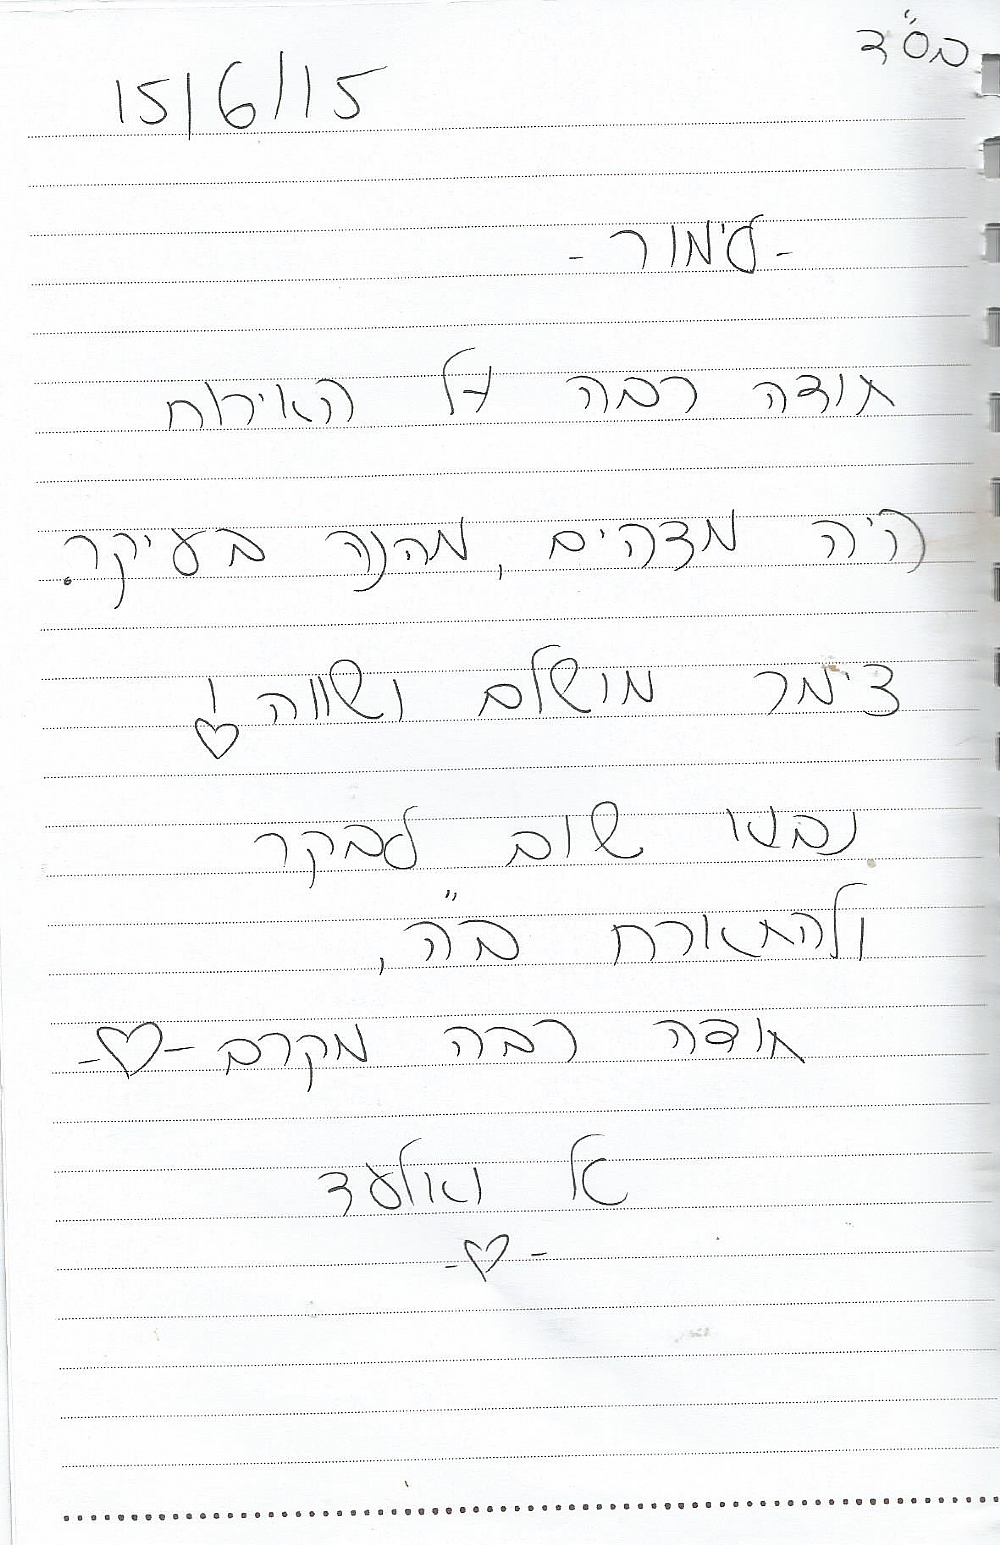 בס"ד
15/6/15
-לימור-
תודה רבה על האירוח
היה מדהים, מהנה בעיקר.
צימר מושלם ושווה!
נבוא שוב לבקר
ולהתארח בע"ה,
תודה רבה מקרב-♡-
טל ואלעד
-♡-